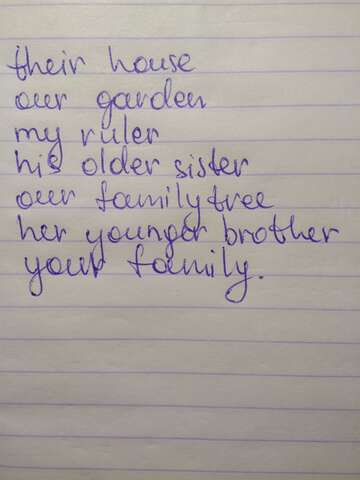 their house
our garden
my ruler
his older sister
our family tree
her younger brother
your family.